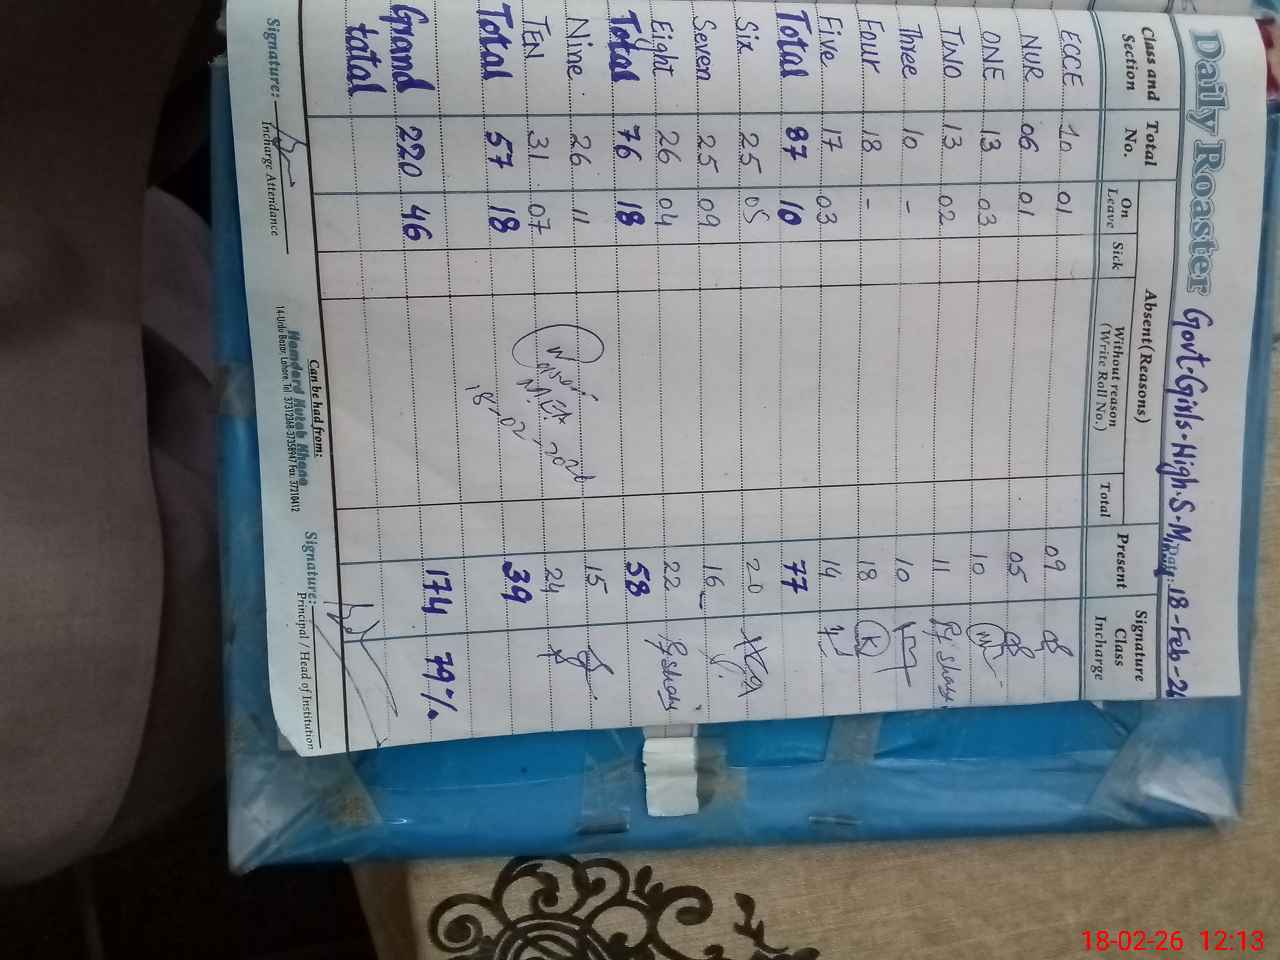 Daily Roaster Govt. Girls. High. S. M Day: 18-Feb-26
Class and Section Total No. Absent (Reasons) Present Signature Class Incharge
On Leave Sick Without reason (Write Roll No.) Total
ECCE 10 01 09
NUR 06 01 05
ONE 13 03 10
TWO 13 02 11
Three 10 - 10
Four 18 - 18 K
Five 17 03 14
Total 87 10 77
Six 25 05 20
Seven 25 09 16
Eight 26 04 22
Total 76 18 58
Nine 26 11 15
TEN 31 07 24
Total 57 18 39
Grand 220 46 174 79%
tatal
18-02-2026
Signature: Incharge Attendance
Can be had from:
Hamdard Kutab Khana
14-Urdu Bazar, Lahore. Tel: 37312368-37358947 Fax: 37210412
Signature: Principal / Head of Institution
18-02-26 12:13